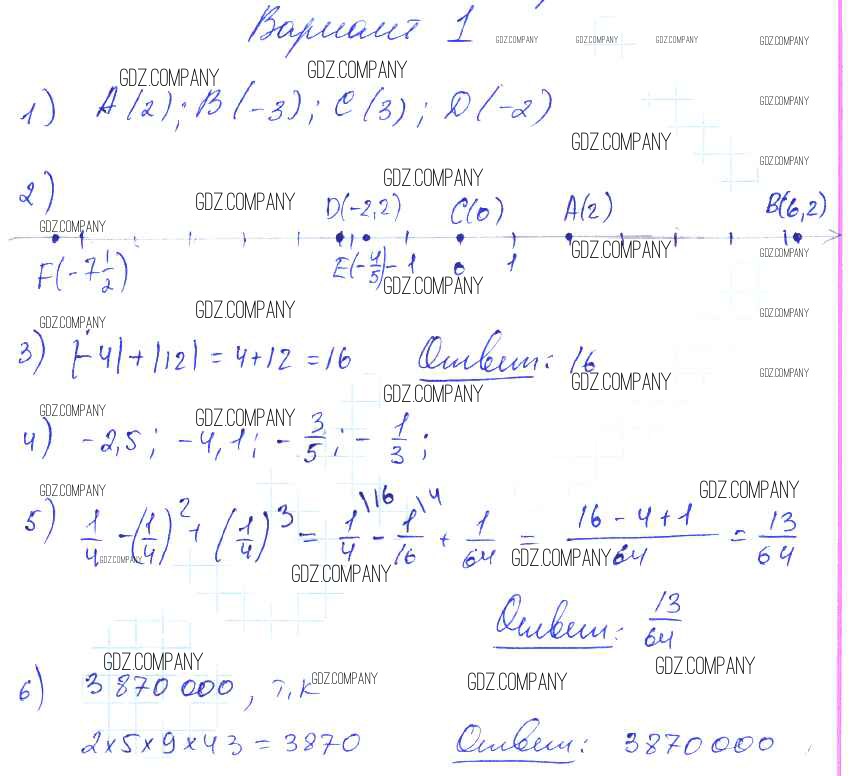 Вариант 1
GDZ.COMPANY GDZ.COMPANY GDZ.COMPANY GDZ.COMPANY
GDZ.COMPANY GDZ.COMPANY
1) A(2); B(-3); C(3); D(-2)
GDZ.COMPANY
GDZ.COMPANY
GDZ.COMPANY
2) GDZ.COMPANY
GDZ.COMPANY
D(-2,2) C(0) A(2) B(6,2)
GDZ.COMPANY
GDZ.COMPANY GDZ.COMPANY
F(-7 1/2) E(-4/5) -1 0 1
GDZ.COMPANY
GDZ.COMPANY GDZ.COMPANY
GDZ.COMPANY
3) |-4|+|12| = 4+12 = 16 Ответ: 16
GDZ.COMPANY GDZ.COMPANY
GDZ.COMPANY
GDZ.COMPANY GDZ.COMPANY
4) -2,5; -4,1; -3/5; -1/3;
GDZ.COMPANY GDZ.COMPANY
5) 1/4 - (1/4)² + (1/4)³ = 1/4 \16 - 1/16 \4 + 1/64 = 16-4+1/64 = 13/64
GDZ.COMPANY GDZ.COMPANY
GDZ.COMPANY
Ответ: 13/64
GDZ.COMPANY GDZ.COMPANY
6) 3 870 000, т.к GDZ.COMPANY GDZ.COMPANY
2×5×9×43 = 3870 Ответ: 3870000